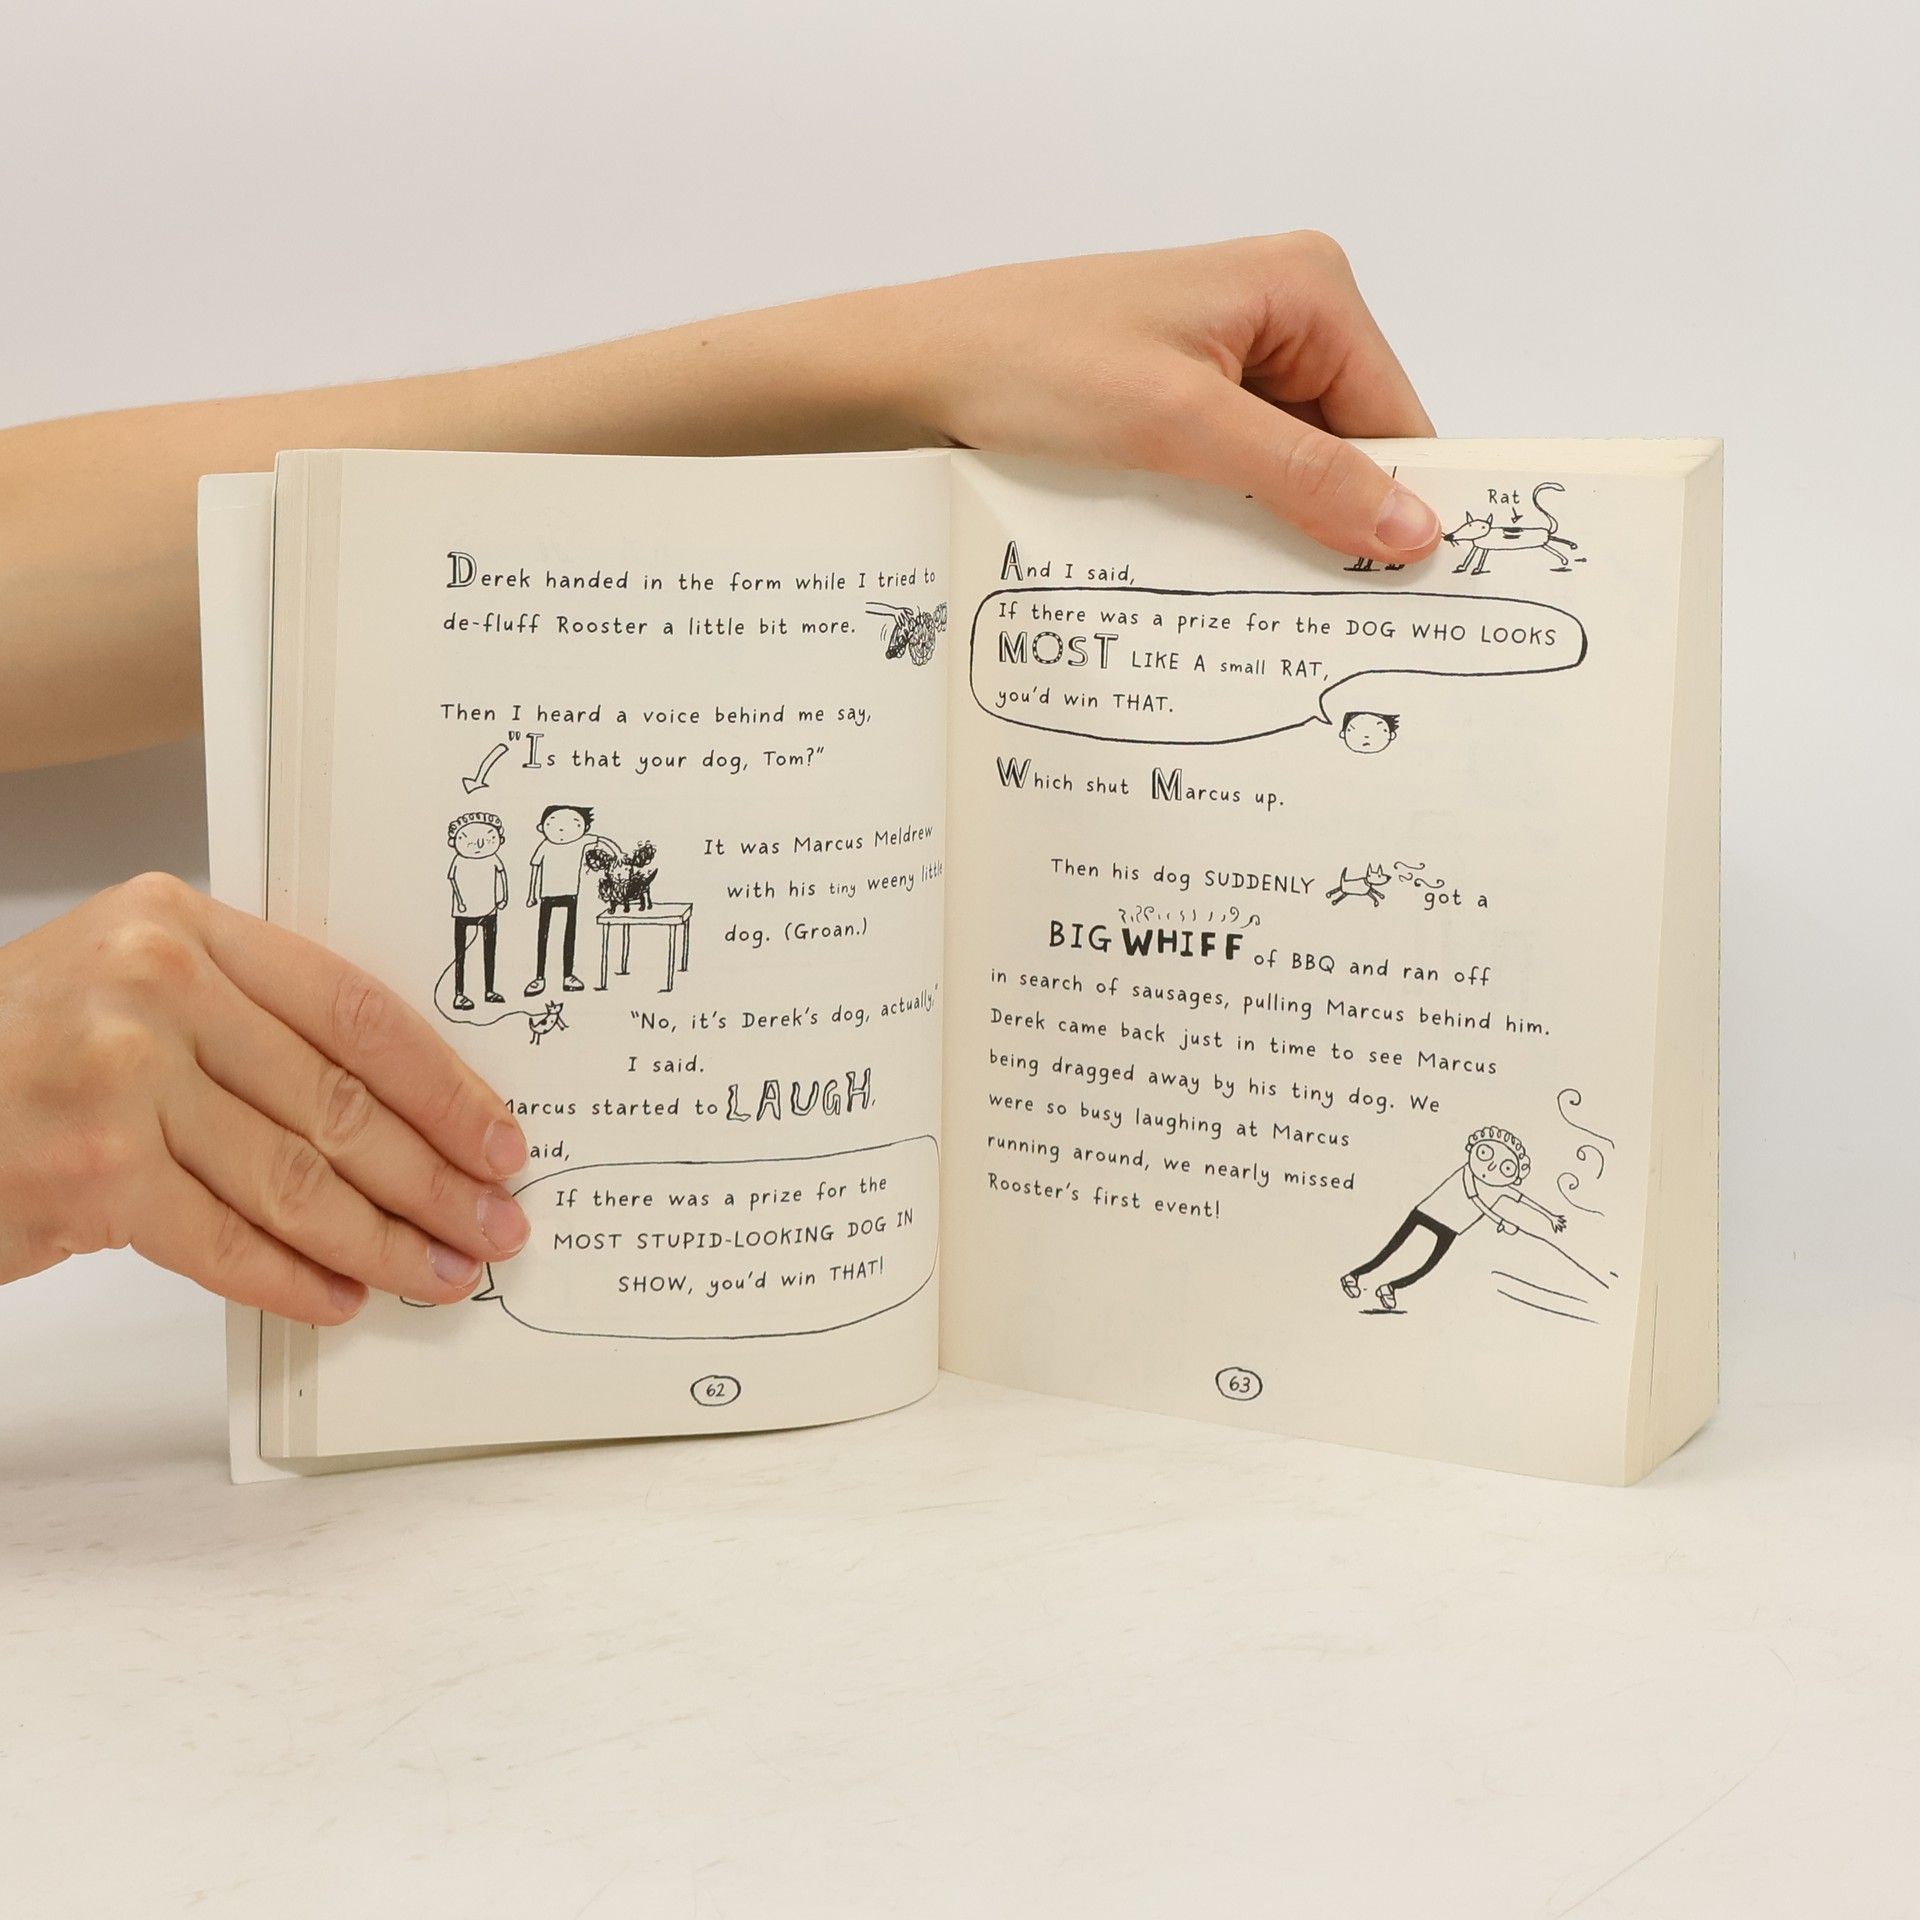 Derek handed in the form while I tried to
de-fluff Rooster a little bit more.
Then I heard a voice behind me say,
"Is that your dog, Tom?"
It was Marcus Meldrew
with his tiny weeny little
dog. (Groan.)
"No, it's Derek's dog, actually,"
I said.
Marcus started to LAUGH.
said,
If there was a prize for the
MOST STUPID-LOOKING DOG IN
SHOW, you'd win THAT!
62
Rat
And I said,
If there was a prize for the DOG WHO LOOKS
MOST LIKE A small RAT,
you'd win THAT.
Which shut Marcus up.
Then his dog SUDDENLY got a
BIG WHIFF of BBQ and ran off
in search of sausages, pulling Marcus behind him.
Derek came back just in time to see Marcus
being dragged away by his tiny dog. We
were so busy laughing at Marcus
running around, we nearly missed
Rooster's first event!
63